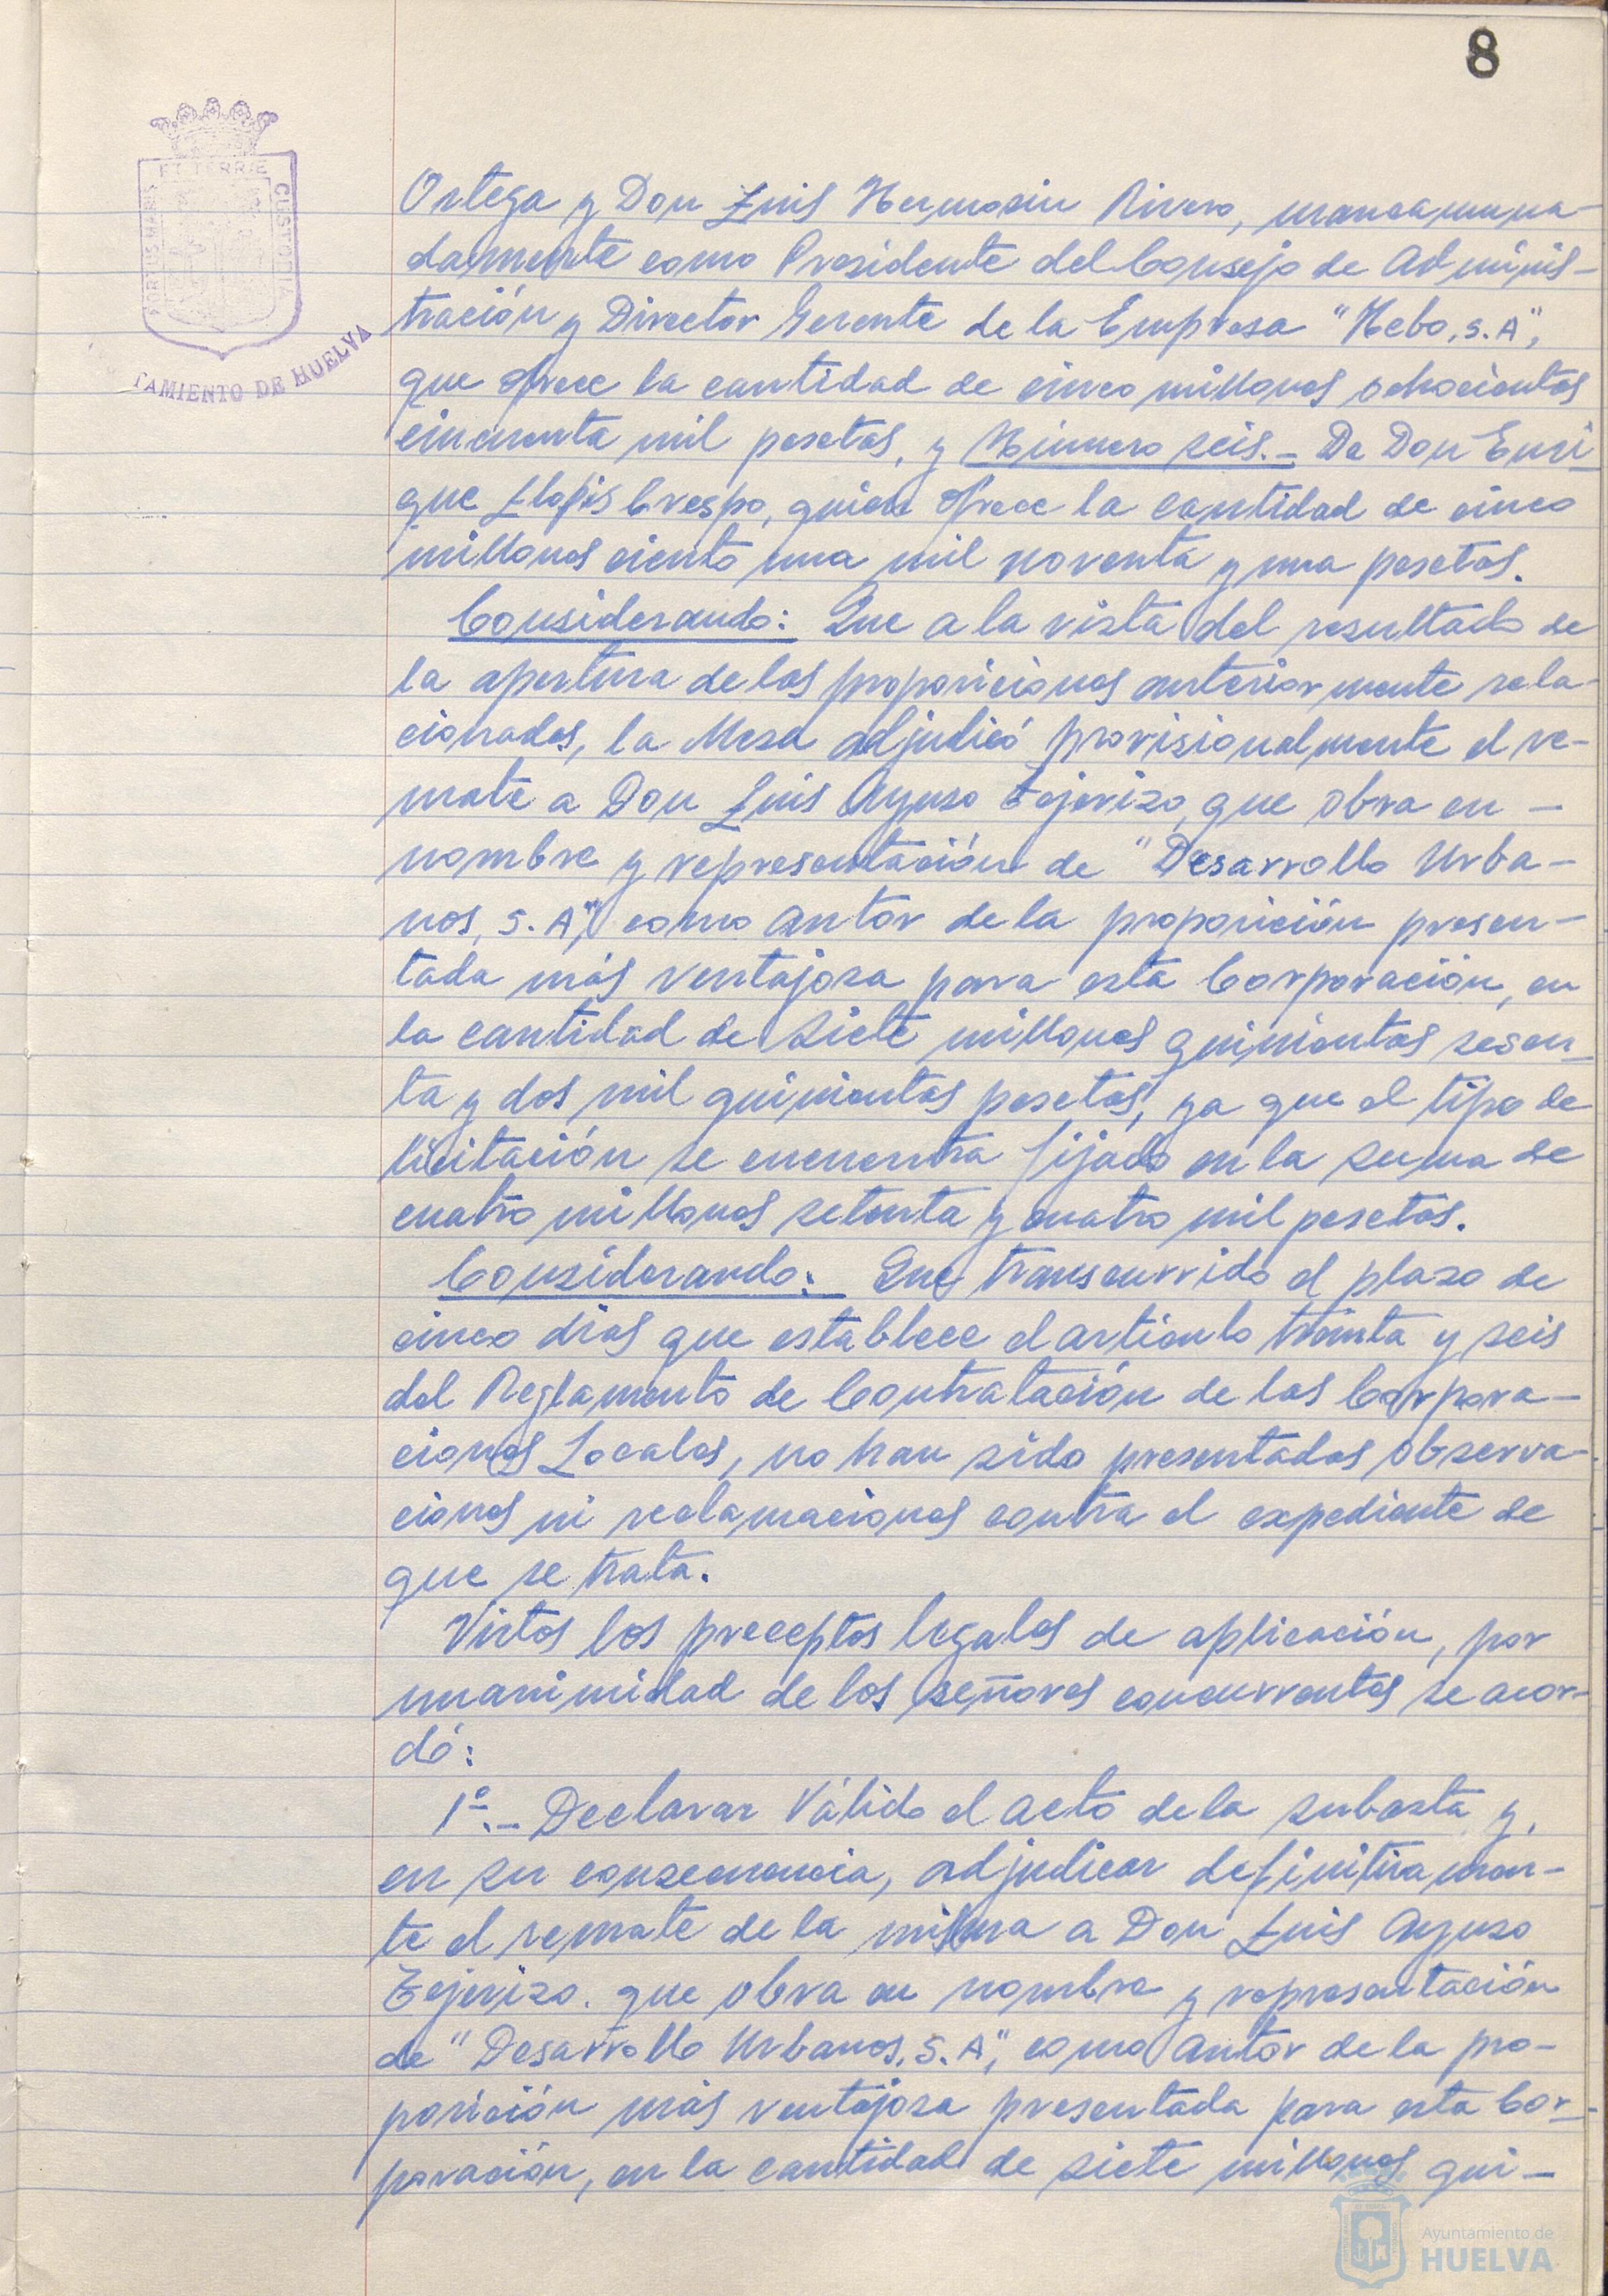 8
ET TERRÆ
PORTUS MARIS
CUSTODIA
TAMIENTO DE HUELVA
Ortega y Don Luis Hermosin Rivero, mancomuna-
damente como Presidente del Consejo de Adminis-
tración y Director Gerente de la Empresa "Hebo, S.A",
que ofrece la cantidad de cinco millones ochocientas
cincuenta mil pesetas, y Número seis.- De Don Enri-
que Llopis Crespo, quien ofrece la cantidad de cinco
millones ciento una mil noventa y una pesetas.
Considerando: Que a la vista del resultado de
la apertura de las proposiciones anteriormente rela-
cionadas, la Mesa adjudicó provisionalmente el re-
mate a Don Luis Ayuso Tejerizo, que obra en -
nombre y representación de "Desarrollo Urba-
nos, S.A", como autor de la proposición presen-
tada más ventajosa para esta Corporación, en
la cantidad de siete millones quinientas sesen-
ta y dos mil quinientas pesetas, ya que el tipo de
licitación se encuentra fijado en la suma de
cuatro millones setenta y cuatro mil pesetas.
Considerando: Que transcurrido el plazo de
cinco días que establece el artículo treinta y seis
del Reglamento de Contratación de las Corpora-
ciones Locales, no han sido presentadas observa-
ciones ni reclamaciones contra el expediente de
que se trata.
Vistos los preceptos legales de aplicación, por
unanimidad de los señores concurrentes se acor-
dó:
1º.- Declarar válido el acto de la subasta y,
en su consecuencia, adjudicar definitivamen-
te el remate de la misma a Don Luis Ayuso
Tejerizo. que obra en nombre y representación
de "Desarrollo Urbanos, S.A", como autor de la pro-
posición más ventajosa presentada para esta Cor-
poración, en la cantidad de siete millones qui-
Ayuntamiento de
HUELVA